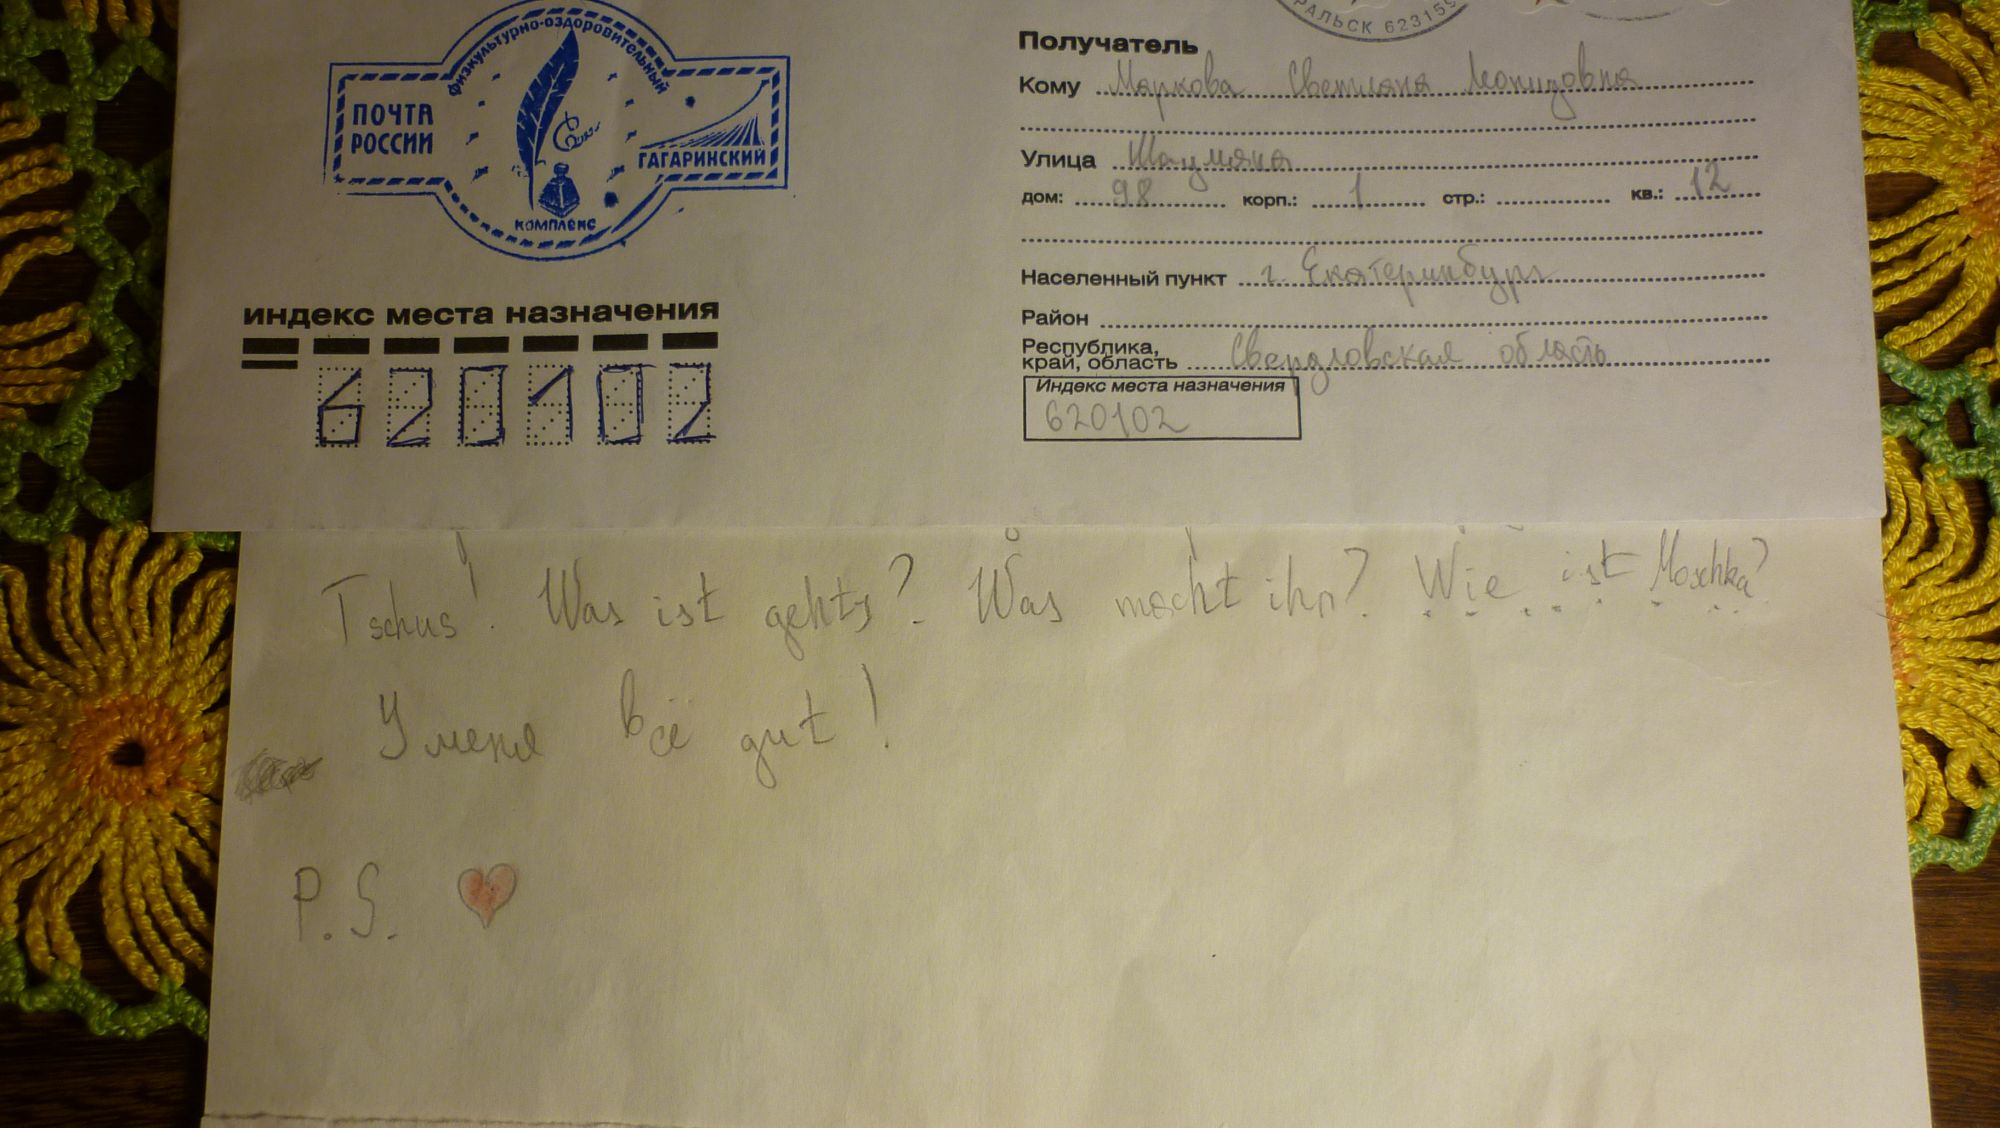 РАЛЬСК 623159
физкультурно-оздоровительный
ПОЧТА
РОССИИ
ГАГАРИНСКИЙ
КОМПЛЕКС
Получатель
Кому Маркова Светлана Леонидовна
Улица Шаумяна
дом: 98 корп.: 1 стр.: кв.: 12
Населенный пункт г. Екатеринбург
Район
Республика,
край, область Свердловская область
Индекс места назначения
620102
индекс места назначения
620102
Tschus! Was ist gehts? Was macht ihn? Wie ist Moschka?
У меня всё gut!
P.S.